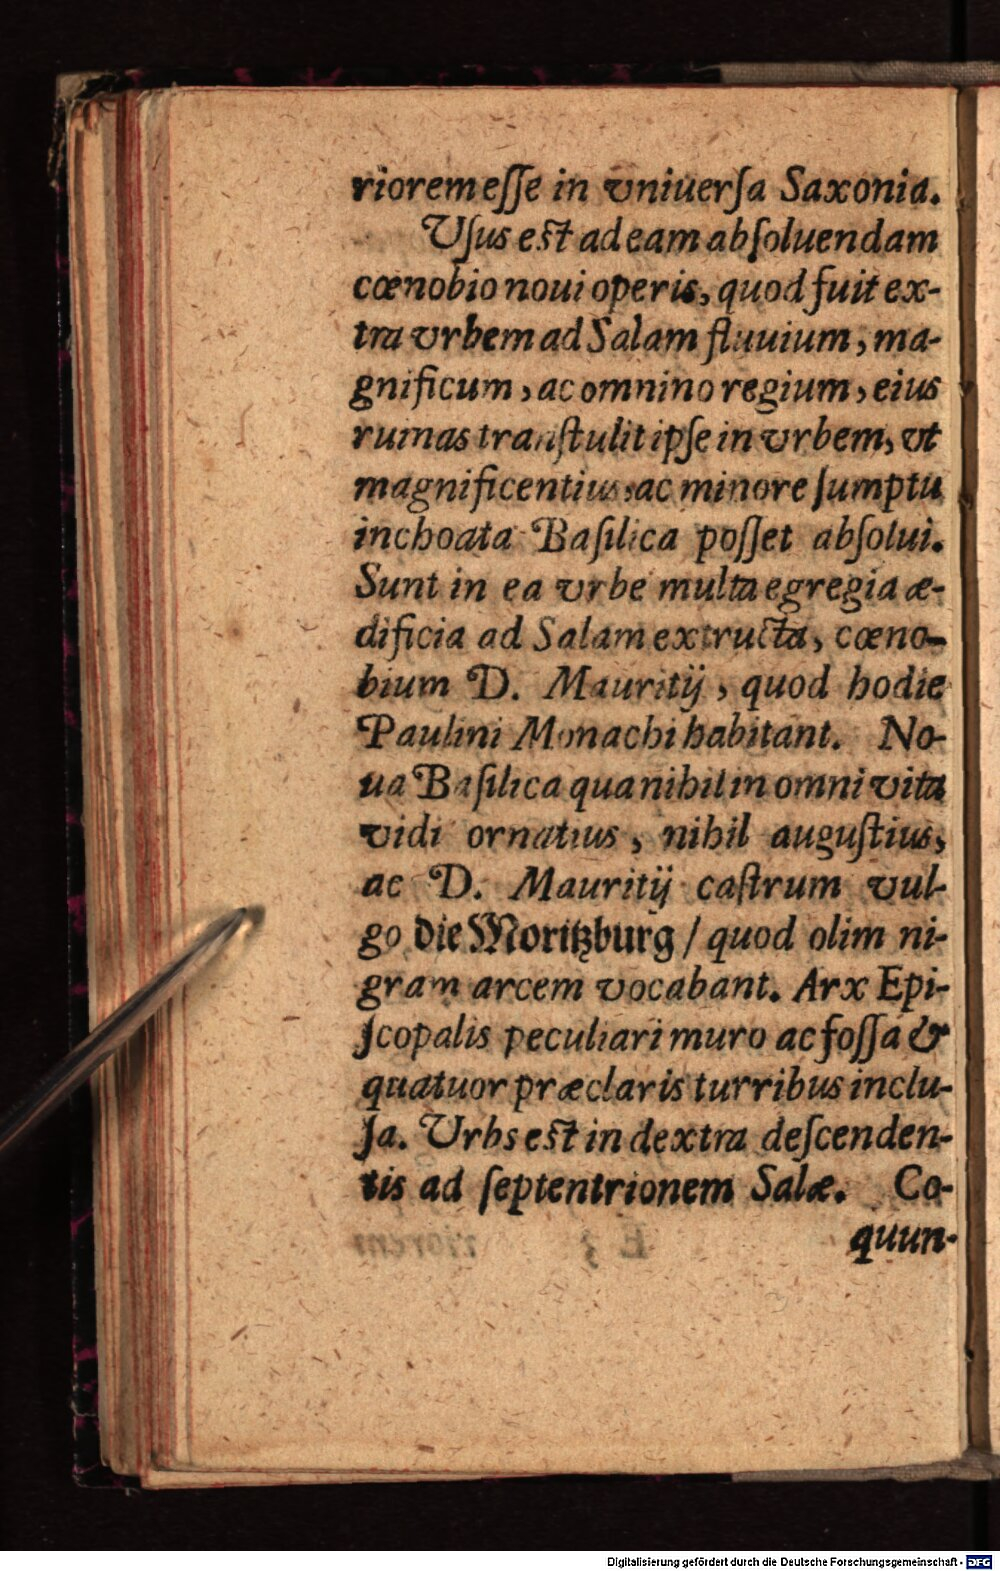 riorem eſſe in vniuerſa Saxonia.
Uſus est ad eam abſoluendam
cœnobio noui operis, quod fuit ex-
tra vrbem ad Salam fluuium, ma-
gnificum, ac omnino regium, eius
ruinas tranſtulit ipſe in vrbem, vt
magnificentius, ac minore ſumptu
inchoata Baſilica poſſet abſolui.
Sunt in ea vrbe multa egregia æ-
dificia ad Salam extructa, cœno-
bium D. Mauritij, quod hodie
Paulini Monachi habitant. No-
ua Baſilica qua nihil in omni vita
vidi ornatius, nihil auguſtius,
ac D. Mauritij caſtrum vul-
go die Moritzburg / quod olim ni-
gram arcem vocabant. Arx Epi-
ſcopalis peculiari muro ac foſſa &
quatuor præclaris turribus inclu-
ſa. Urbs est in dextra deſcenden-
tis ad ſeptentrionem Salæ. Co-
quun-
Digitalisierung gefördert durch die Deutsche Forschungsgemeinschaft - DFG